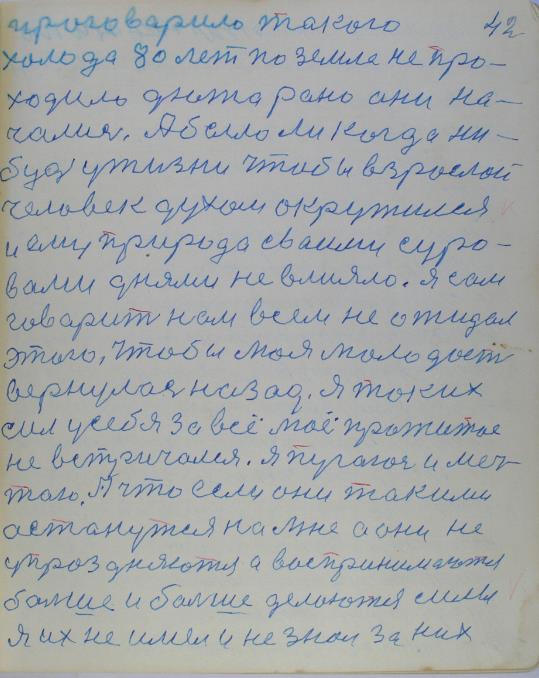 42
проговарило такого
холода 80 лет по земле не про-
ходило дюжа рано они на-
чались. А было ли когда ни-
буд у жизни чтобы взрослой
человек духом окружился
и ему природа сваими суро-
вами днями не влияло. Я сам
говарит нам всем не ожидал
этого, чтобы моя молодост
вернулась назад. Я таких
сил у себя за всё моё прожитое
не встричался. Я пугаюс и меч-
таю. А что если они такими
астанутся на мне а они не
упраздняются а воспринимаются
балше и балше делаются силы
я их не имел и не знал за них